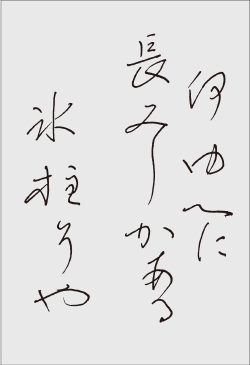 何ゆへに
長みじかある
氷柱ぞや